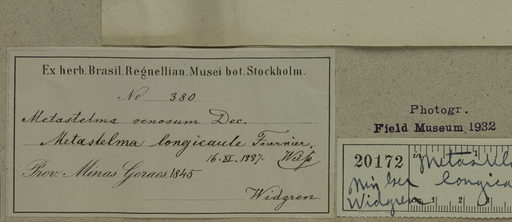 Ex herb. Brasil. Regnellian. Musei bot. Stockholm.
No 380
Metastelma venosum Dec.
Metastelma longicaule Fournier.
16. XI. 1887.
Prov. Minas Geraes 1845
Widgren
Photogr.
Field Museum, 1932
20172
Metastel
longica
Widgren